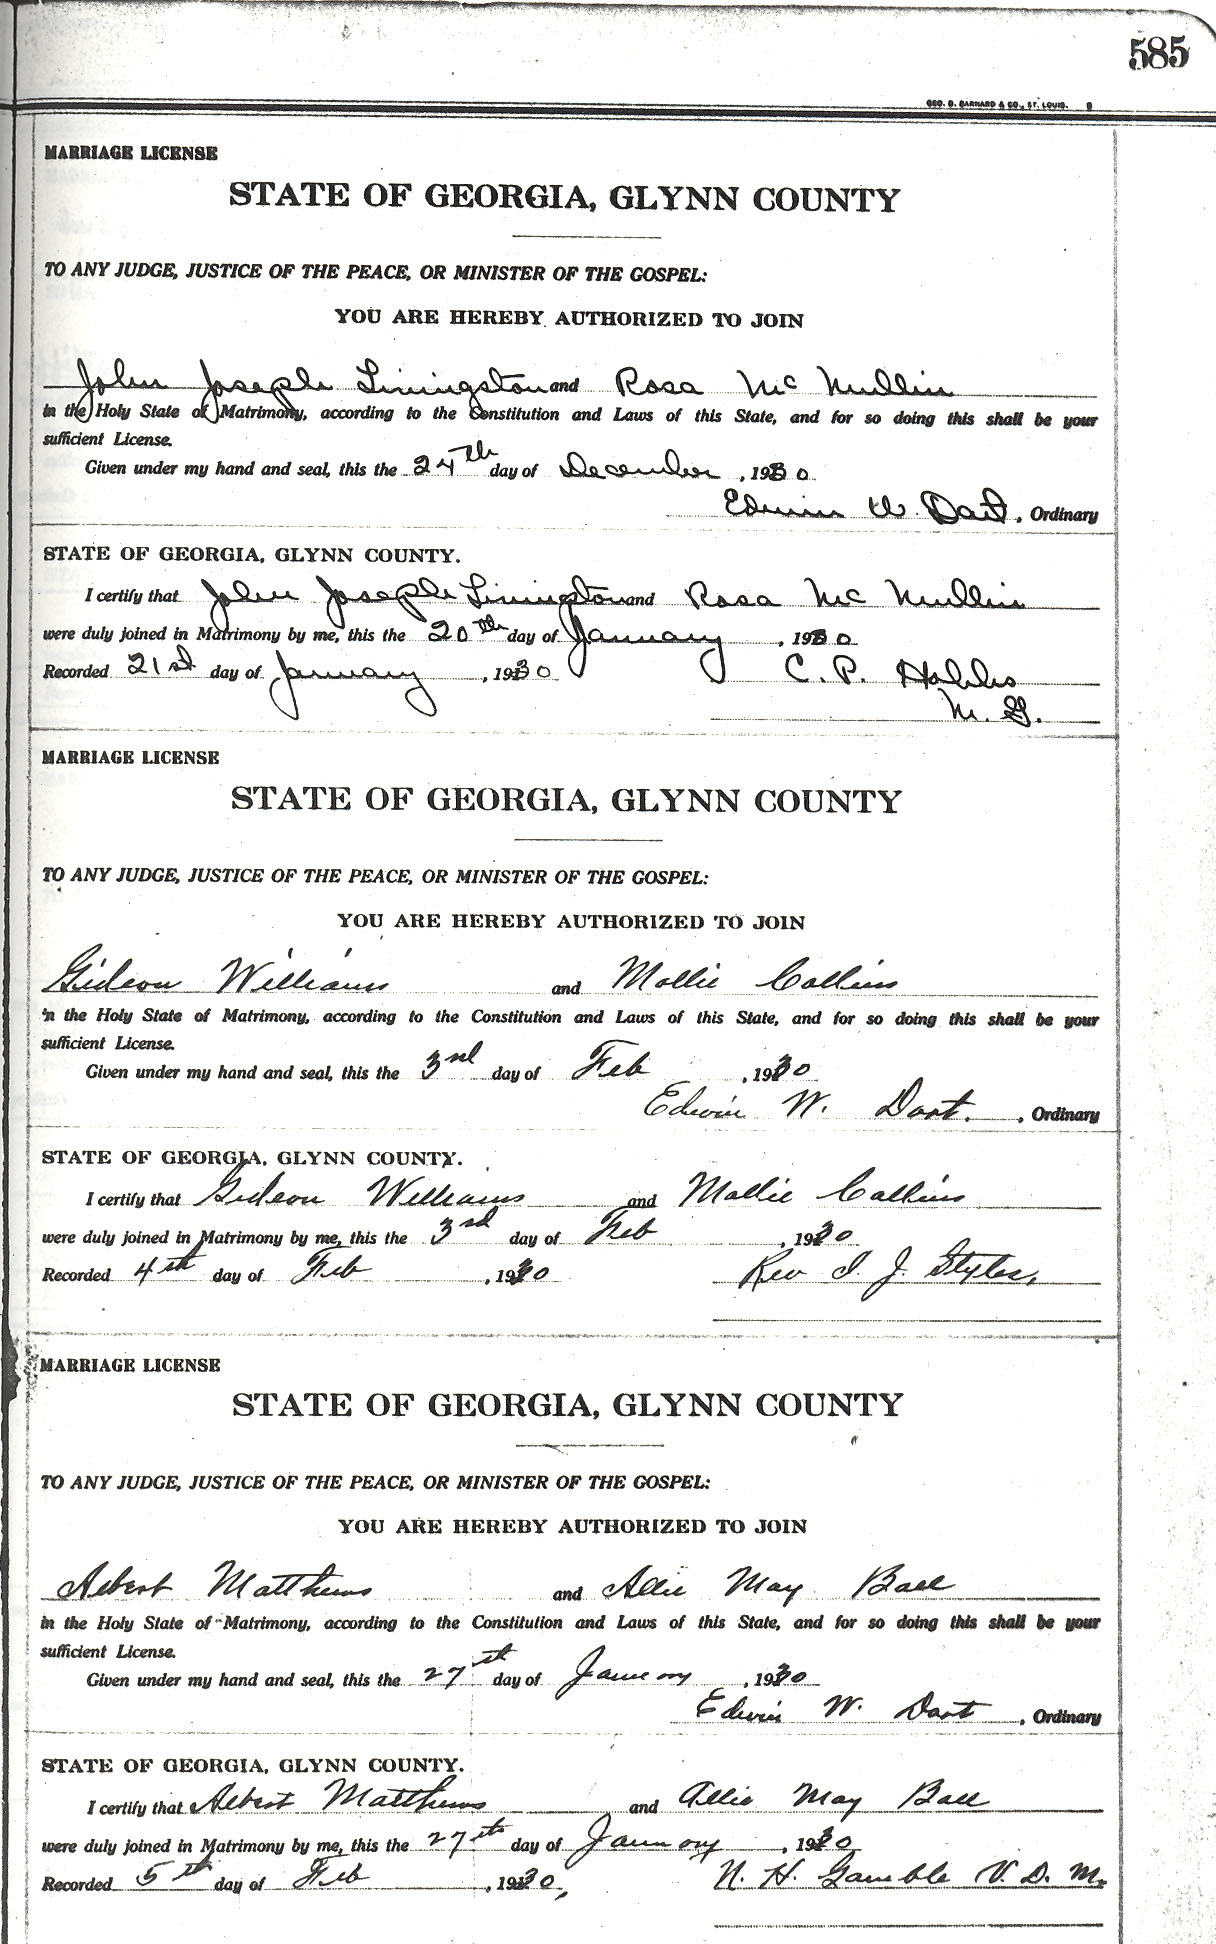 585
GEO. D. BARNARD & CO., ST. LOUIS. B
MARRIAGE LICENSE
STATE OF GEORGIA, GLYNN COUNTY
TO ANY JUDGE, JUSTICE OF THE PEACE, OR MINISTER OF THE GOSPEL:
YOU ARE HEREBY AUTHORIZED TO JOIN
John Joseph Livingston and Rosa Mc Mullin
in the Holy State of Matrimony, according to the Constitution and Laws of this State, and for so doing this shall be your
sufficient License.
Given under my hand and seal, this the 24th day of December, 1930
Edwin W. Dart, Ordinary
STATE OF GEORGIA, GLYNN COUNTY.
I certify that John Joseph Livingston and Rosa Mc Mullin
were duly joined in Matrimony by me, this the 20th day of January, 1930
Recorded 21st day of January, 1930 C. P. Hobbs
M. G.
MARRIAGE LICENSE
STATE OF GEORGIA, GLYNN COUNTY
TO ANY JUDGE, JUSTICE OF THE PEACE, OR MINISTER OF THE GOSPEL:
YOU ARE HEREBY AUTHORIZED TO JOIN
Gideon Williams and Mollie Collins
in the Holy State of Matrimony, according to the Constitution and Laws of this State, and for so doing this shall be your
sufficient License.
Given under my hand and seal, this the 3rd day of Feb, 1930
Edwin W. Dart., Ordinary
STATE OF GEORGIA, GLYNN COUNTY.
I certify that Gideon Williams and Mollie Collins
were duly joined in Matrimony by me, this the 3rd day of Feb, 1930
Recorded 4th day of Feb, 1930 Rev I. J. Styles,
MARRIAGE LICENSE
STATE OF GEORGIA, GLYNN COUNTY
TO ANY JUDGE, JUSTICE OF THE PEACE, OR MINISTER OF THE GOSPEL:
YOU ARE HEREBY AUTHORIZED TO JOIN
Albert Matthews and Allie May Ball
in the Holy State of Matrimony, according to the Constitution and Laws of this State, and for so doing this shall be your
sufficient License.
Given under my hand and seal, this the 27st day of January, 1930
Edwin W. Dart, Ordinary
STATE OF GEORGIA, GLYNN COUNTY.
I certify that Albert Matthews and Allie May Ball
were duly joined in Matrimony by me, this the 27th day of January, 1930
Recorded 5th day of Feb, 1930, N. H. Gamble V. D. M.